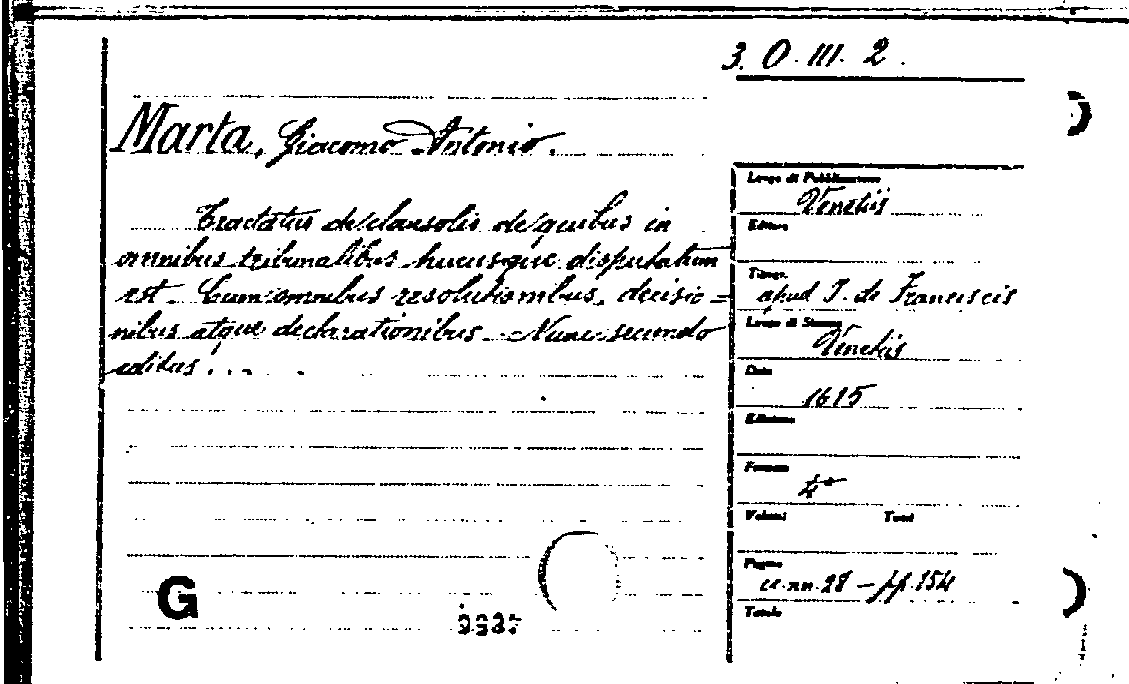 3. O. III. 2.
Marta, Giacomo Antonio.
Tractatus de clausolis de quibus in
omnibus tribunalibus hucusque disputatum
est. Cum omnibus resolutionibus, decisio=
nibus atque declarationibus. Nunc secundo
editus...
Luogo di Pubblicazione
Venetiis
Editore
Tipogr.
apud J. de Franciscis
Luogo di Stampa
Venetiis
Data
1615
Edizione
Formato
4°
Volumi Tomi
Pagine
cc. nn. 28 - pp. 154
Totale
G